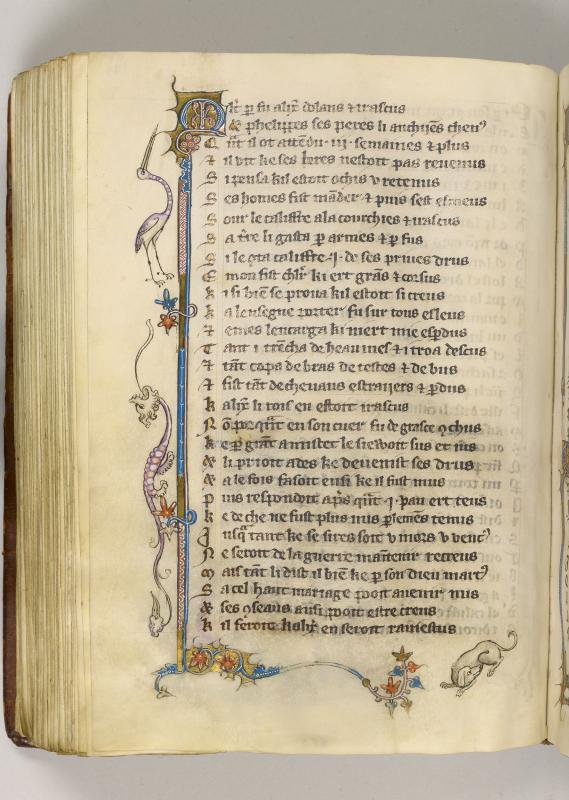 fu alix dolans & irascus
phelippes ses peres li anchijens cheu9
il ot attendu · iij · semaines & plus
Z il vit ke ses homes nestoit pas reuenus
S i pensa kil estoit ochis v retenus
S es homes fist mander & puis sest esmeus
S our le califfre a la & irascus
S a tre li gasta p armes & p fus
S i le ota califfre · j · de ses priues drus
E mon fist chlr ki ert grans & corsus
k i si bien se proua kil estoit si creus
k a lensegne porter fu sur tous esleus
Z emes lencarga ki niert mie espdus
T ant i trencha de heaumes & i troa descus
Z tant copa de bras de testes & de bus
Z fist tant de cheuaus estraijers & pdus
k alix li rois en estoit irascus
N o porqnt en son cuer fu de grasce 9chus
k e p grant amistet le siewoit sus et ius
& li prioit ades ke deuenist ses drus
& a le fois faisoit ensi ke il fust mus
P uis respondoit aps qnt · j · pau ert teus
k e de che ne fust plus nus plemens tenus
J usqa tant ke se sires soit v mors v vencus
N e seroit de la guerre maintenir recreus
M ais tant li dist il bien ke p son dieu
S a cel haut mariage pooit auenir nus
& ses 9seaus ausi pooit estre creus
k il feroit en seroit rauiestus